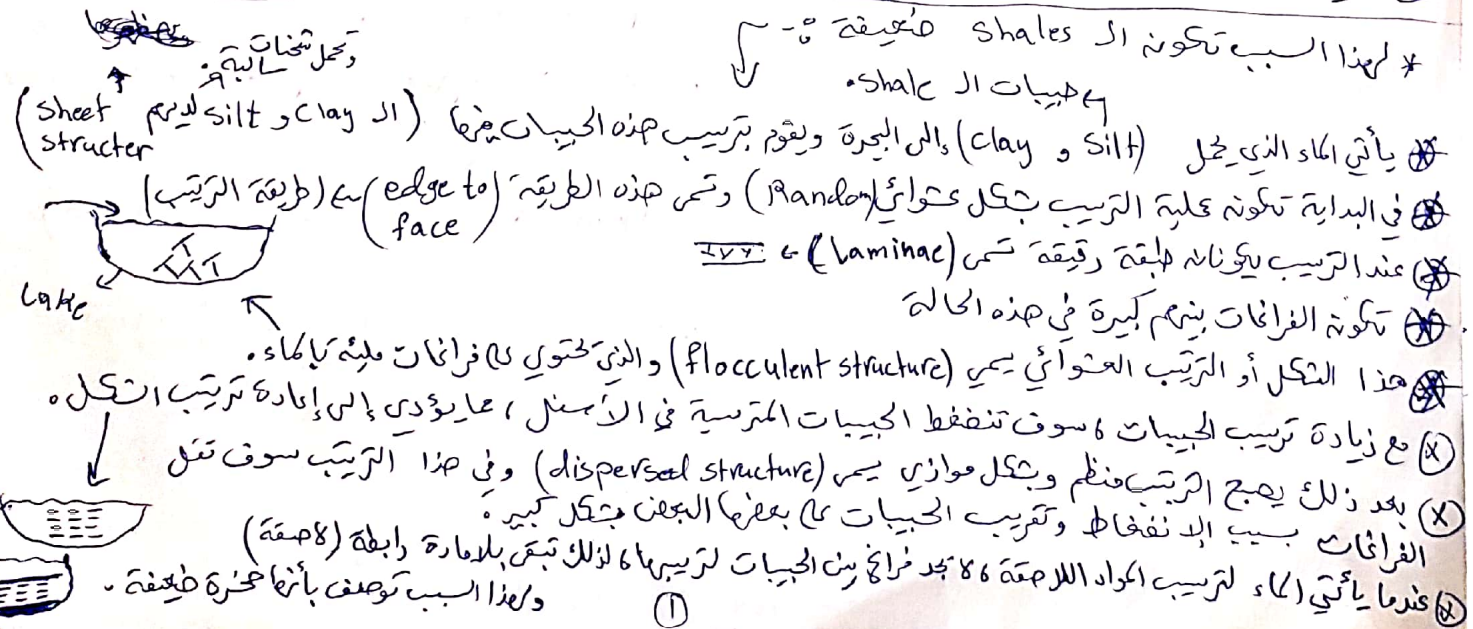 * لهذا السبب تكون ال shales ضعيفة :-
وتحمل شحنات سالبة.
حبيبات ال shale.
يأتي الماء الذي يحمل (silt و clay) إلى البحرة ويقوم بترسيب هذه الحبيبات فيها (ال clay و silt لديهم sheet structer)
في البداية تكون عملية الترسيب بشكل عشوائي (Random) وتسمى هذه الطريقة (edge to face) ← (طريقة الترتيب)
عند الترسيب يكونان طبقة رقيقة تسمى (laminae) ←
تكون الفراغات بينهم كبيرة في هذه الحالة
Lake
هذا الشكل أو الترتيب العشوائي يسمى (flocculent structure) والذي يحتوي على فراغات مليئه بالماء.
مع زيادة ترسيب الحبيبات، سوف تنضغط الحبيبات المترسبة في الأسفل، مما يؤدي إلى إعادة ترتيب الشكل.
بعد ذلك يصبح الترتيب منظم وبشكل موازي يسمى (dispersed structure) وفي هذا الترتيب سوف تقل
الفراغات بسبب الإنضغاط وتقريب الحبيبات على بعضها البعض بشكل كبير.
عندما يأتي الماء لترسيب المواد اللاصقة، لا تجد فراغ بين الحبيبات لترسيبها، لذلك تبقى بلا مادة رابطة (لاصقة)
ولهذا السبب توصف بأنها صخرة ضعيفة.
1